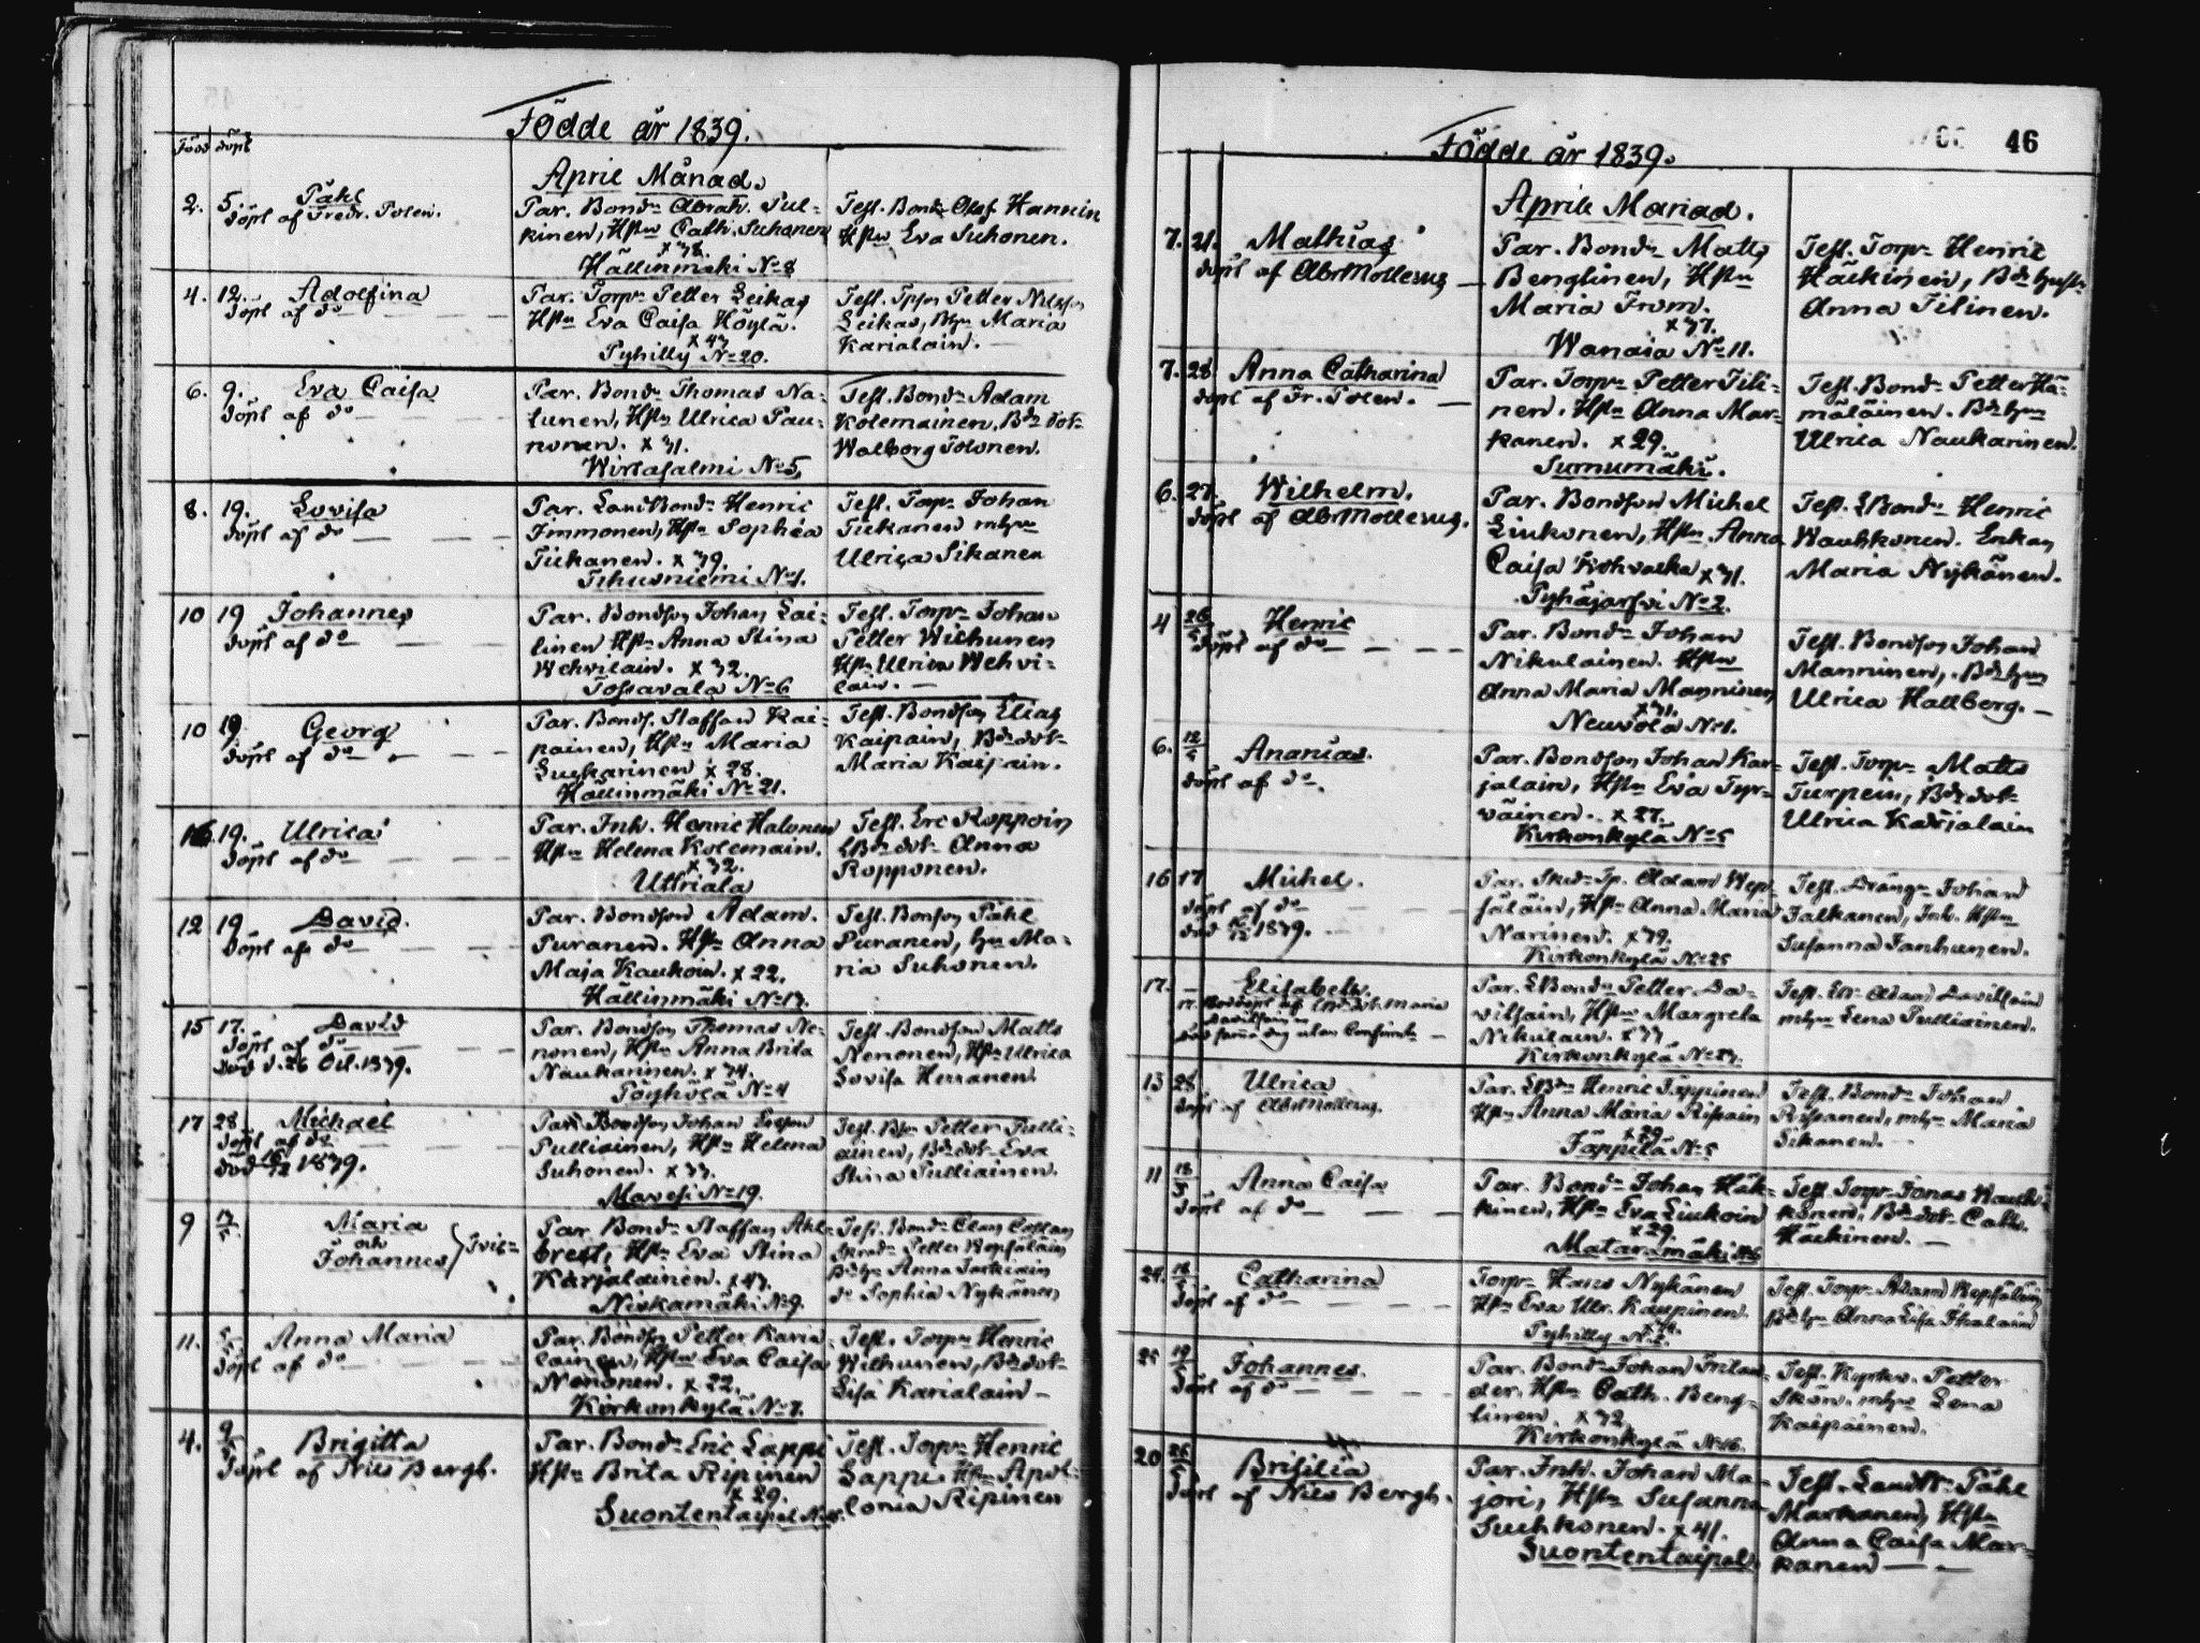 Födde år 1839.
Född döpt
April Månad.
2. 5. Påhl
döpt af Fredr. Polén.
Par. Bond. Abrah. Pul-
kinen, Hstu Cath. Suhonen
x 38.
Hällinmäki No 8
Test. Bond. Olof Hannin
Hstu Eva Suhonen.
4. 12. Adolfina
döpt af do
Par. Torpr Petter Leikas
Hstu Eva Caisa Höylä.
x 43
Pyhilty No 20.
Leikas, Maria
Karialain.
6. 9. Eva Caisa
döpt af do
Par. Bond. Thomas Na-
tunen, Hstu Ulrica Pau-
nonen. x 31.
Wirtasalmi No 5
Test. Bond. Adam
Kolemainen, Bdr dotr
Walborg Tolonen.
8. 19. Lovisa
döpt af do
Par. LandBond. Henric
Immonen, Hstu Sophia
Tiikanen. x 39.
Tihusniemi No 1.
Test. Torpr Johan
Tiikanen mhu
Ulrica Sikanen
10 19 Johannes
döpt af do
Par. Bondson Johan Lai-
tinen Hstu Anna Stina
Wehvilain. x 32.
Tossavala No 6
Test. Torpr Johan
Petter Wichunen
Hstu Ulrica Wehvi-
lain.
10 19 Georg
döpt af do
Par. Bonds. Staffan Kai-
painen, Hstu Maria
Suckarinen x 28.
Hällinmäki No 21.
Test. Bondson Elias
Kaipain, Bdr dotr
Maria Kaipain.
19. Ulrica
döpt af do
Par. Inh. Henric Halonen
Hstu Helena Kolemain.
x 32.
Uttriala
Test. Eric Roppoin
LBdr dotr Anna
Ropponen.
12 19 David.
döpt af do
Par. Bondson Adam.
Puranen. Hstu Anna
Maja Kaukoin. x 22.
Hällinmäki No 13.
Test. Bonson Påhl
Puranen, hu Ma-
ria Suhonen.
15 17. David
döpt af do
död d. 26 Oct. 1839.
Par. Bondson Thomas Ne-
nonen, Hstu Anna Brita
Naukarinen. x 34.
Pöyhölä No 4
Test. Bondson Matts
Nenonen, Hstu Ulrica
Lovisa Herranen.
17 28 Michael
döpt af do
död 1839.
Par. Bondson Johan Ericson
Pulliainen, Hstu Helena
Suhonen. x 33.
Mavesi No 19.
Test. Petter Pulli-
ainen, Bdr dotr Eva
Stina Pulliainen.
9 Maria
och
Johannes
Par Bond. Staffan Ahl-
brest, Hstu Eva Stina
Karjalainen. x 43.
Niskamäki No 9.
Test. Bond.
Petter
Anna
do Sophia Nykänen
11. Anna Maria
döpt af do
Par. Bondson Petter Karia-
lainen, Hstu Eva Caisa
Nenonen. x 22.
Kirkonkylä No 7.
Test. Torpr Henric
Wilhunen, Bdr dotr
Lisa Karialain
4. 9/5 Brigitta
döpt af Nils Bergh.
Par. Bond. Eric Lappi
Hstu Brita Ripinen
x 29.
Suontentaipal
Test. Torpr Henric
Lappi Hstu Apol-
lonia Ripinen
46
Födde år 1839.
April Månad.
7. 21. Mathias
döpt af Abr Mollerus
Par. Bond. Matts
Bengtinen, Hstu
Maria From.
x 37.
Wanaia No 11.
Test. Torpr Henric
Häckinen, Bdr hustr
Anna Tilinen.
7. 28 Anna Catharina
döpt af Fr. Polen.
Par. Torpr Petter Tili-
nen, Hstu Anna Mar-
kanen. x 29.
Surnumäki.
Test. Bond. Petter Hä-
mäläinen. Bdr hu
Ulrica Naukarinen.
6. 27. Wilhelm.
döpt af Abr Mollerus.
Par. Bondson Michel
Liukonen, Hstu Anna
Caisa Kohvacka x 31.
Pyhäjärfvi No 2.
Test. LBond. Henric
Wauhkonen. Enkan
Maria Nykänen.
4 26/5 Henric
döpt af do
Par. Bond. Johan
Nikulainen. Hstu
Anna Maria Manninen
x 31.
Neuvola No 1.
Test. Bondson Johan
Manninen, Bdr hu
Ulrica Hallberg.
6. 12/5 Ananias.
döpt af do.
Par. Bondson Johan Kar-
jalain, Hstu Eva Tyr-
väinen. x 27.
Kirkonkylä No 5
Test. Torpr Matts
Turpein, Bdr dotr
Ulrica Karjalain
16 17 Michel.
döpt af do
död 1839.
Par. Adam Wep-
säläin, Hstu Anna Maria
Narinen. x 39.
Kirkonkylä No 25
Test. Dräng. Johan
Jalkanen, Inh. Hstu
Susanna Janhunen.
17. Elisabeth.
Maria
Par. LBond. Petter Da-
vitsain, Hstu Margreta
Nikulain. x 33
Kirkonkylä No 23.
Test. Adam Davitsain
mhu Lena Pulliainen.
13 28 Ulrica
döpt af Abr Mollerus.
Par. LBdr Henric Jäppinen
Hstu Anna Maria Ripain
x 29.
Jäppilä No 5
Test. Bond. Johan
Ripanen, mhu Maria
Sikanen.
11 18/5 Anna Caisa
döpt af do
Par. Bond. Johan Häk-
kinen, Hstu Eva Liukoin
x 29.
Mataramäki No 6
Test. Torpr Jonas Wauh-
konen, Bdr dotr Cath.
Häckinen.
24. Catharina
döpt af do
Torpr Hans Nykänen
Hstu Eva Ulr. Kauppinen.
Pyhilty No 2.
Test. Torpr Adam Wepsäläin
Bdr hu Anna Lisa Ihalain
25 19/5 Johannes.
döpt af do
Par. Bond. Johan Frilan-
der. Hstu Cath. Beng-
tinen. x 32
Kirkonkylä No 16.
Test. Kyrkov. Petter
Skön. mhu Lena
Kaipainen.
20 26/5 Brisilia
döpt af Nils Bergh.
Par. Inh. Johan Ma-
jori, Hstu Susanna
Suhkonen. x 41.
Suontentaipal.
Test. Landb. Påhl
Markanen, Hstu
Anna Caisa Mar-
kanen